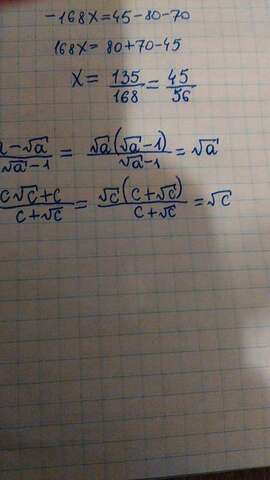 -168x = 45-80-70
168x = 80+70-45
x = 135/168 = 45/56
a-√a/√a-1 = √a(√a-1)/√a-1 = √a
c√c+c/c+√c = √c(c+√c)/c+√c = √c